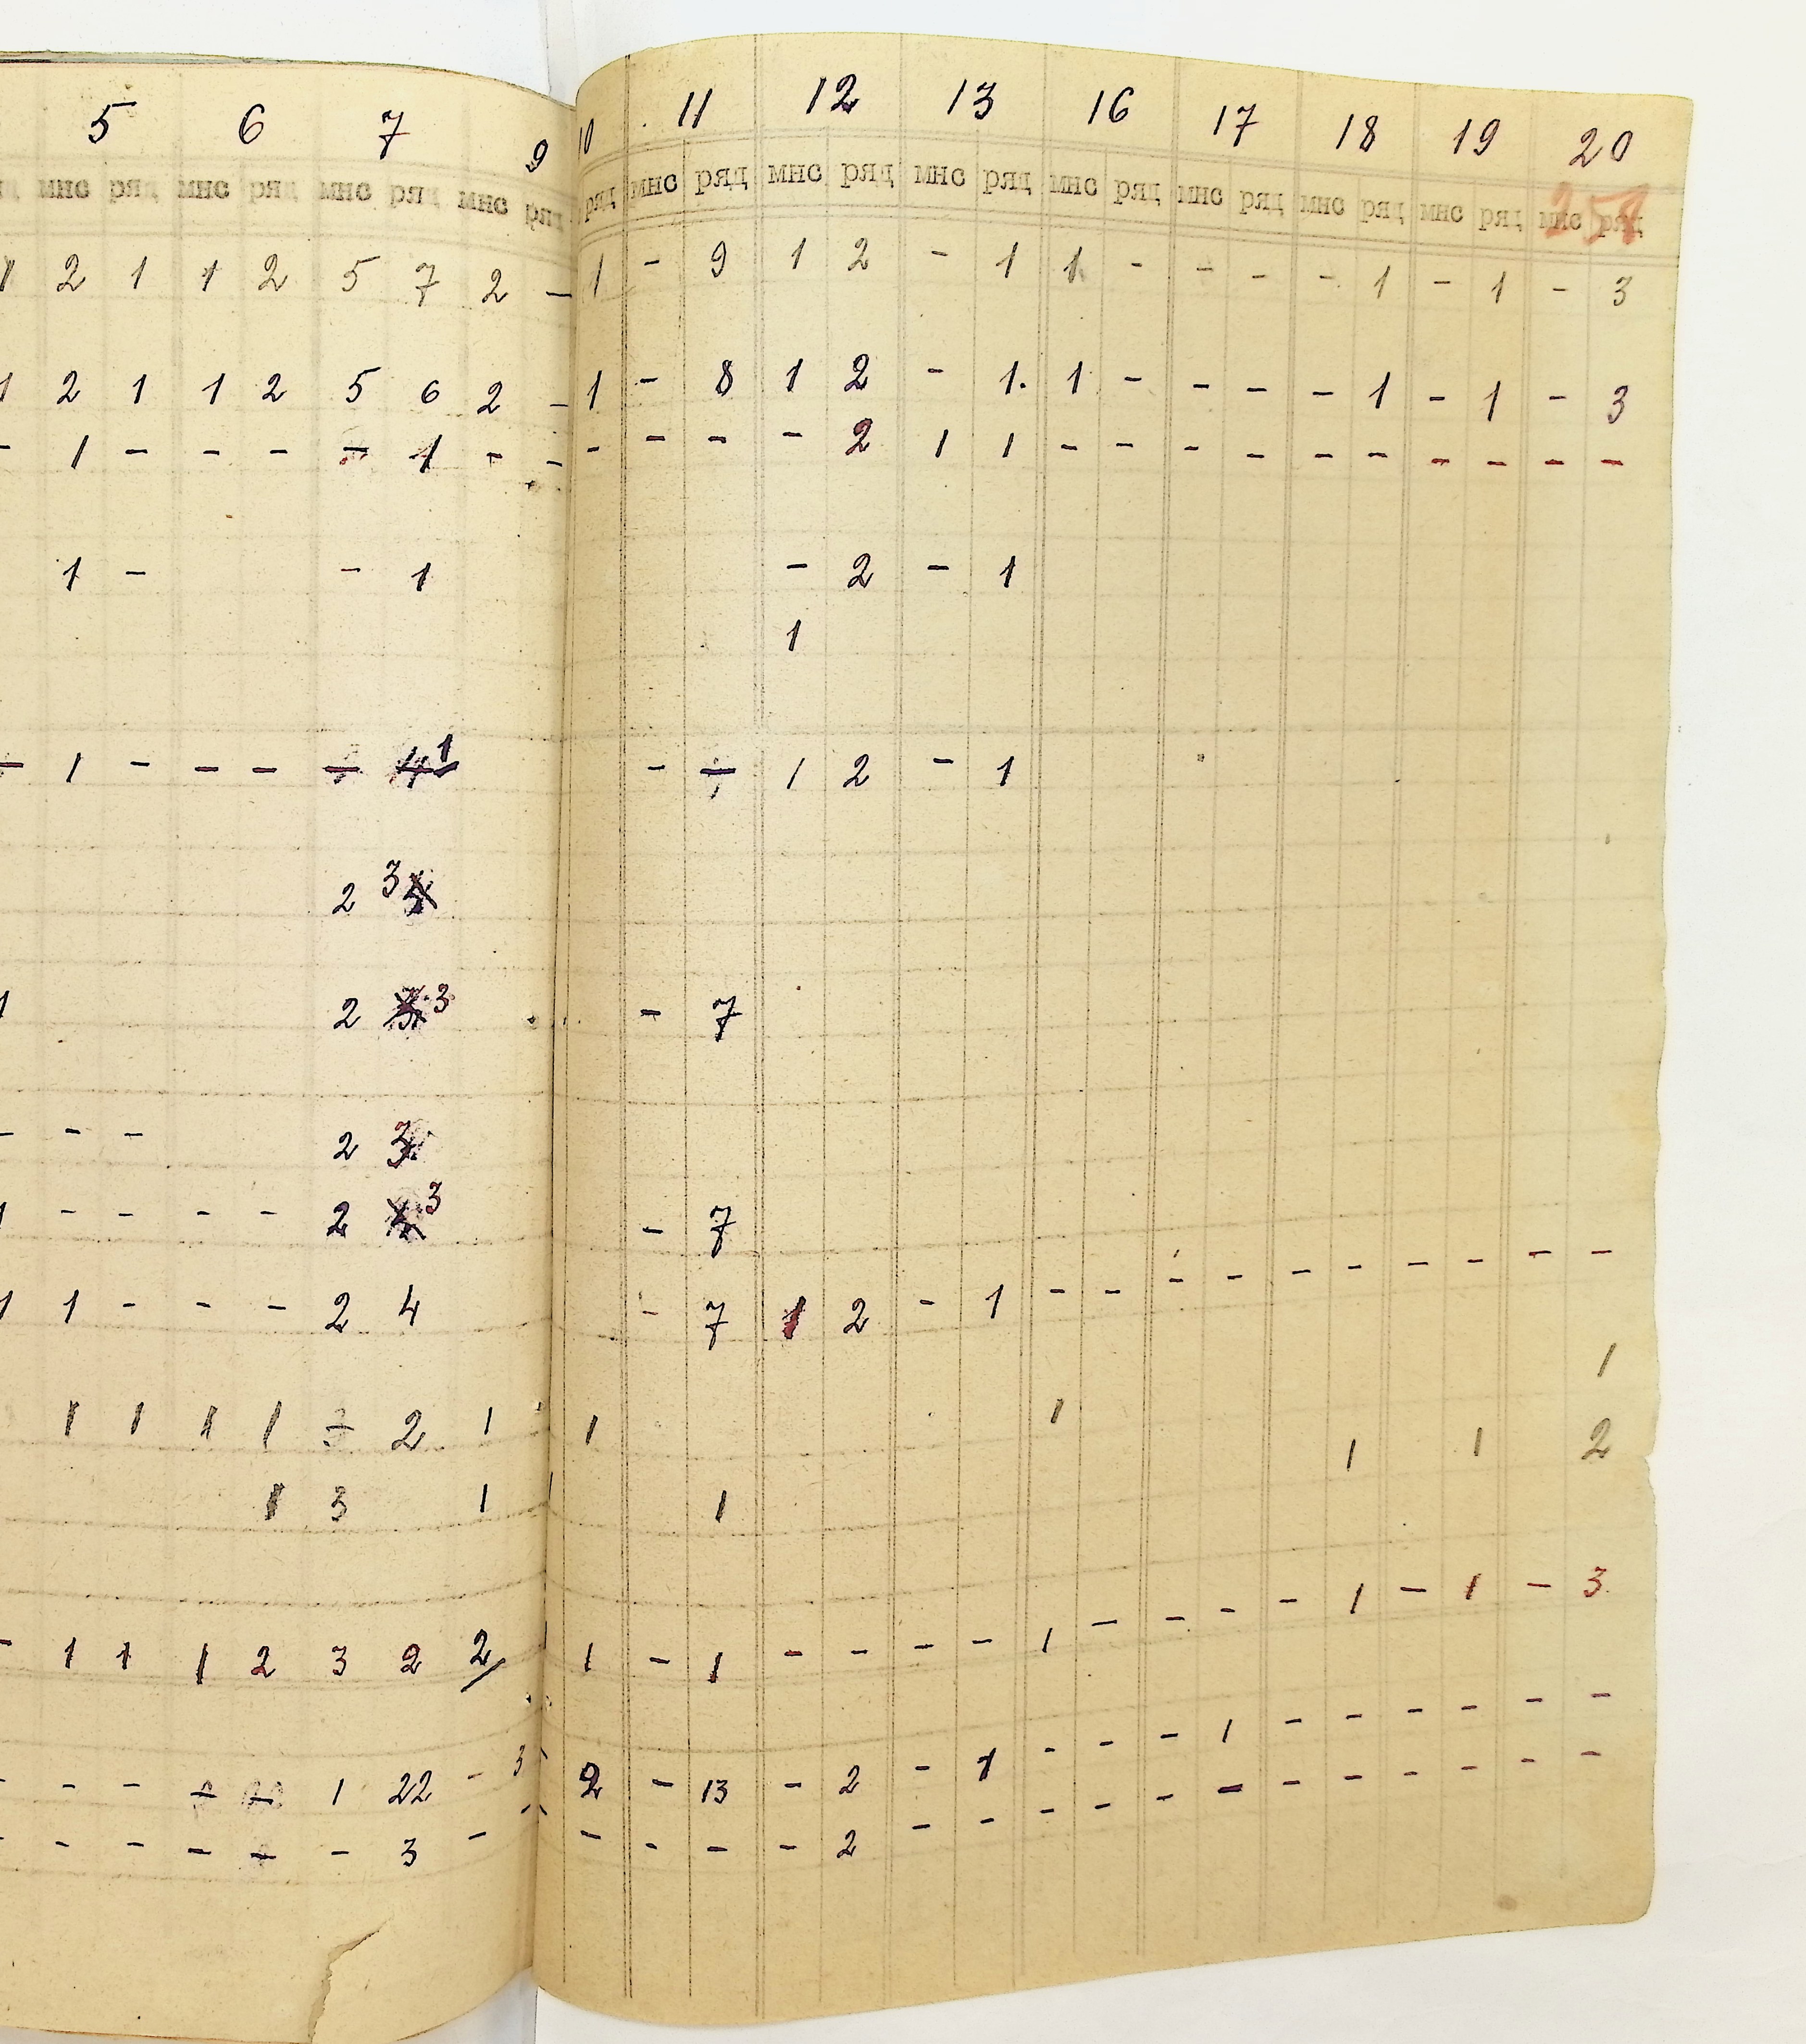 5 6 7 9 10 11 12 13 16 17 18 19 20
мнс ряд мнс ряд мнс ряд мнс ряд ряд мнс ряд мнс ряд мнс ряд мнс ряд мнс ряд мнс ряд мнс ряд мнс ряд
1 2 1 1 2 5 7 2 — 1 - 9 1 2 - 1 1 - - - - 1 - 1 - 3
1 2 1 1 2 5 6 2 - 1 - 8 1 2 - 1. 1 - - - - 1 - 1 - 3
- 1 - - - - 1 - - - - - - 2 1 1 - - - - - - - - - -
1 - - 1 - 2 - 1
1
- 1 - - - - 1 - - 1 2 - 1
2 3
1 2 3 - 7
- - - 2 3
1 - - - - 2 3 - 7
1 1 - - - 2 4 - 7 1 2 - 1 - - - - - - - - - -
1
1 1 1 1 3 2 1 1 1 1 1 2
1 3 1 1 1
- 1 1 1 2 3 2 2 1 - 1 - - - - 1 - - - - 1 - 1 - 3
- - - - - 1 22 - 3 2 - 13 - 2 - 1 - - - 1 - - - - - -
- - - - - - 3 - - - - - - 2 - - - - - - - - - - - -